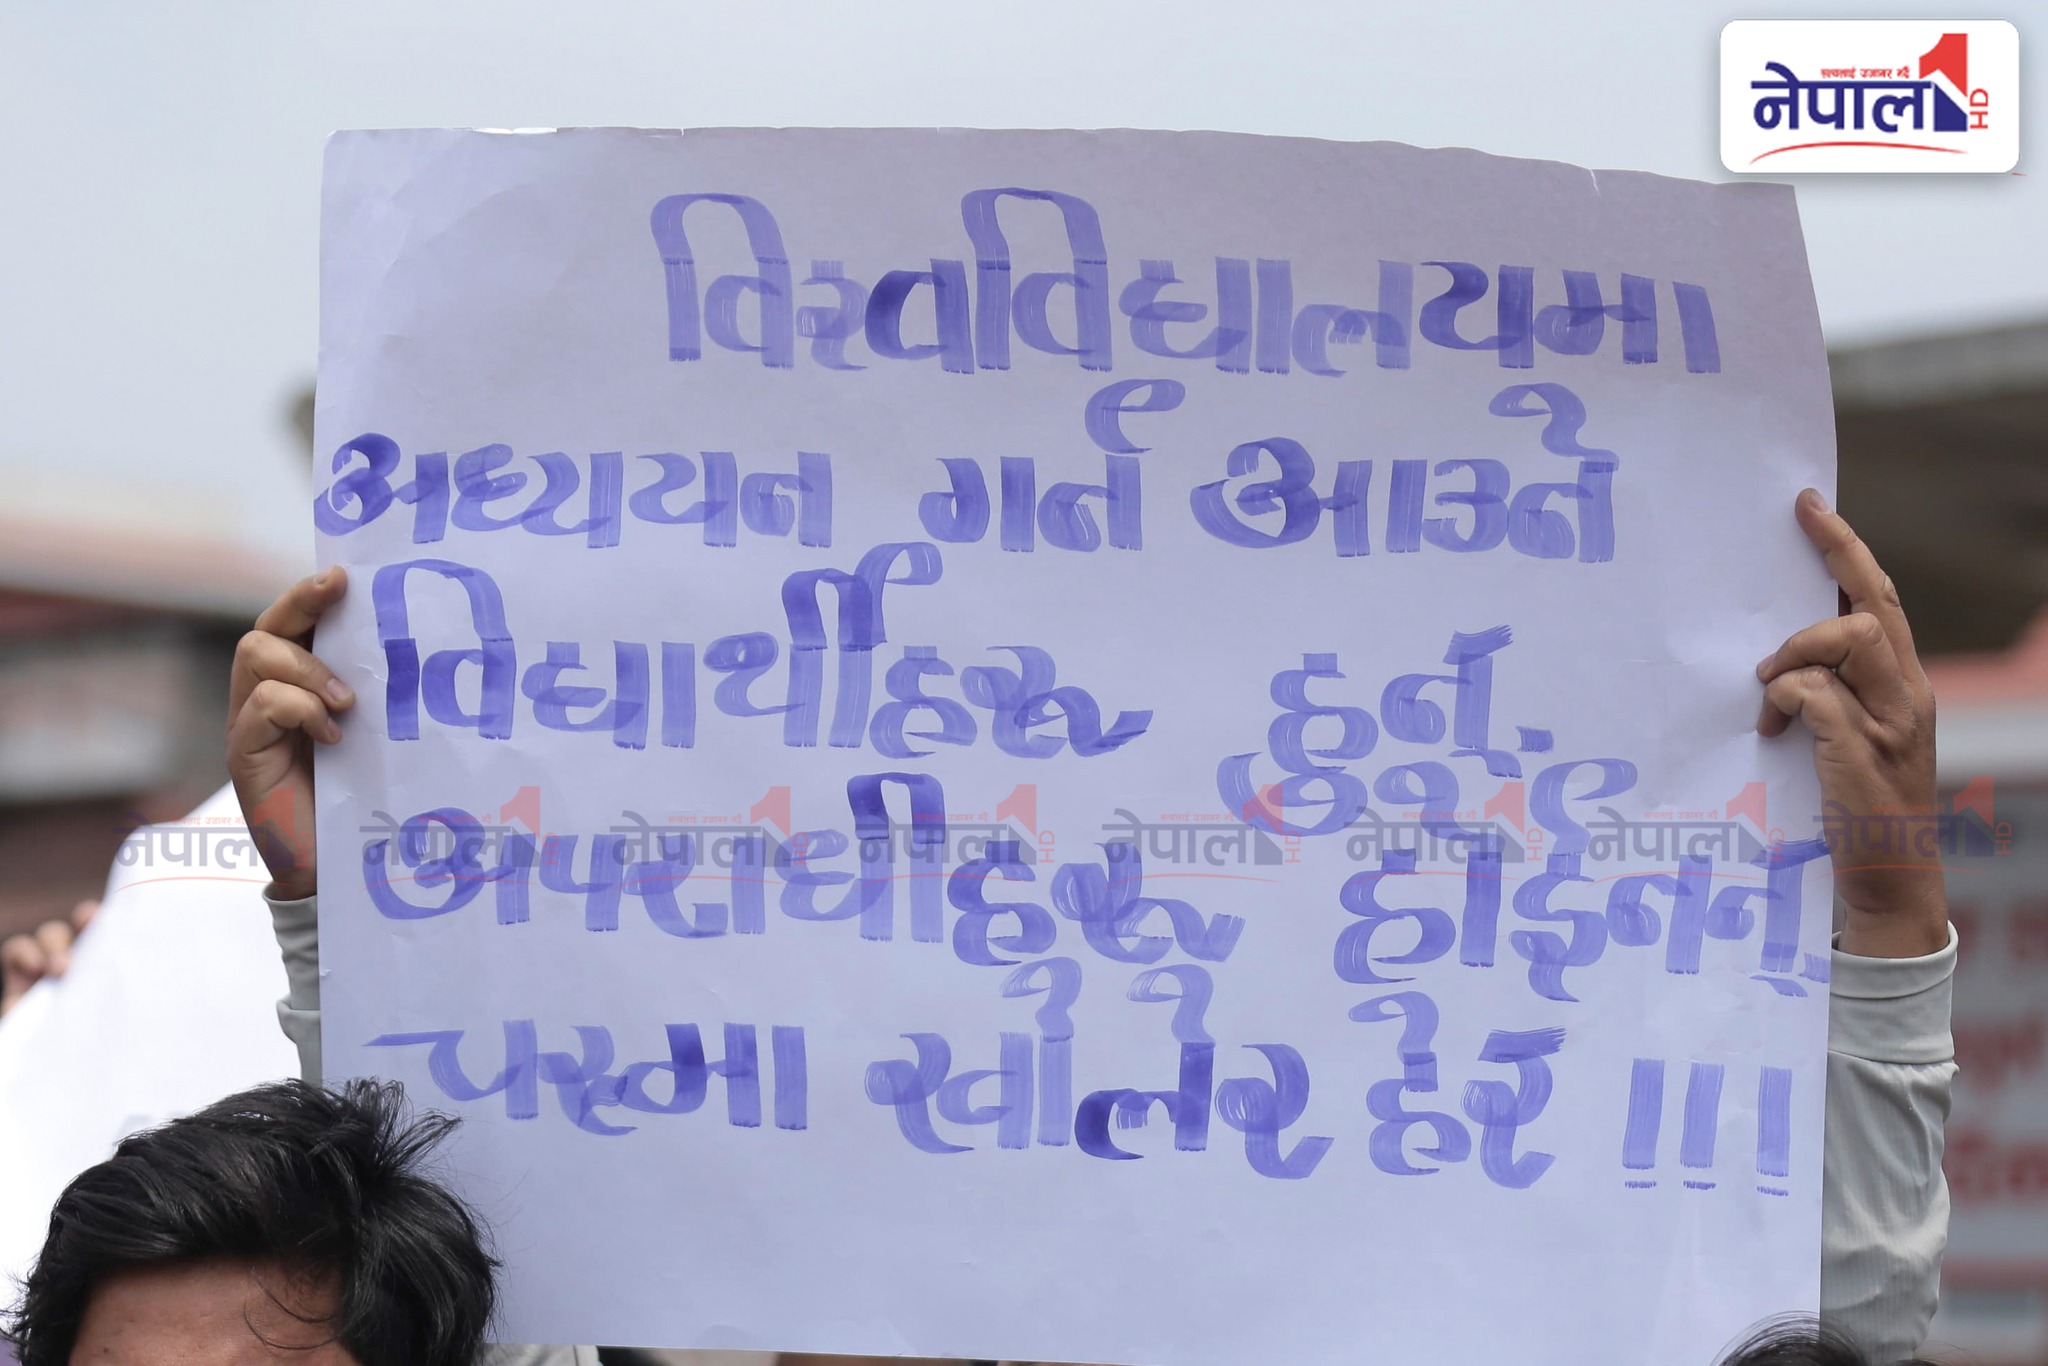 सत्यलाई उजागर गर्दै
नेपाल 1 HD
विश्वविद्यालयमा
अध्ययन गर्न आउने
विद्यार्थीहरू हुन्.
अपराधीहरू होईनन्.
नेपाल 1 HD नेपाल 1 HD नेपाल 1 HD नेपाल 1 HD नेपाल 1 HD नेपाल 1 HD नेपाल 1 HD नेपाल 1 HD
चस्मा खोलेर हेर !!!